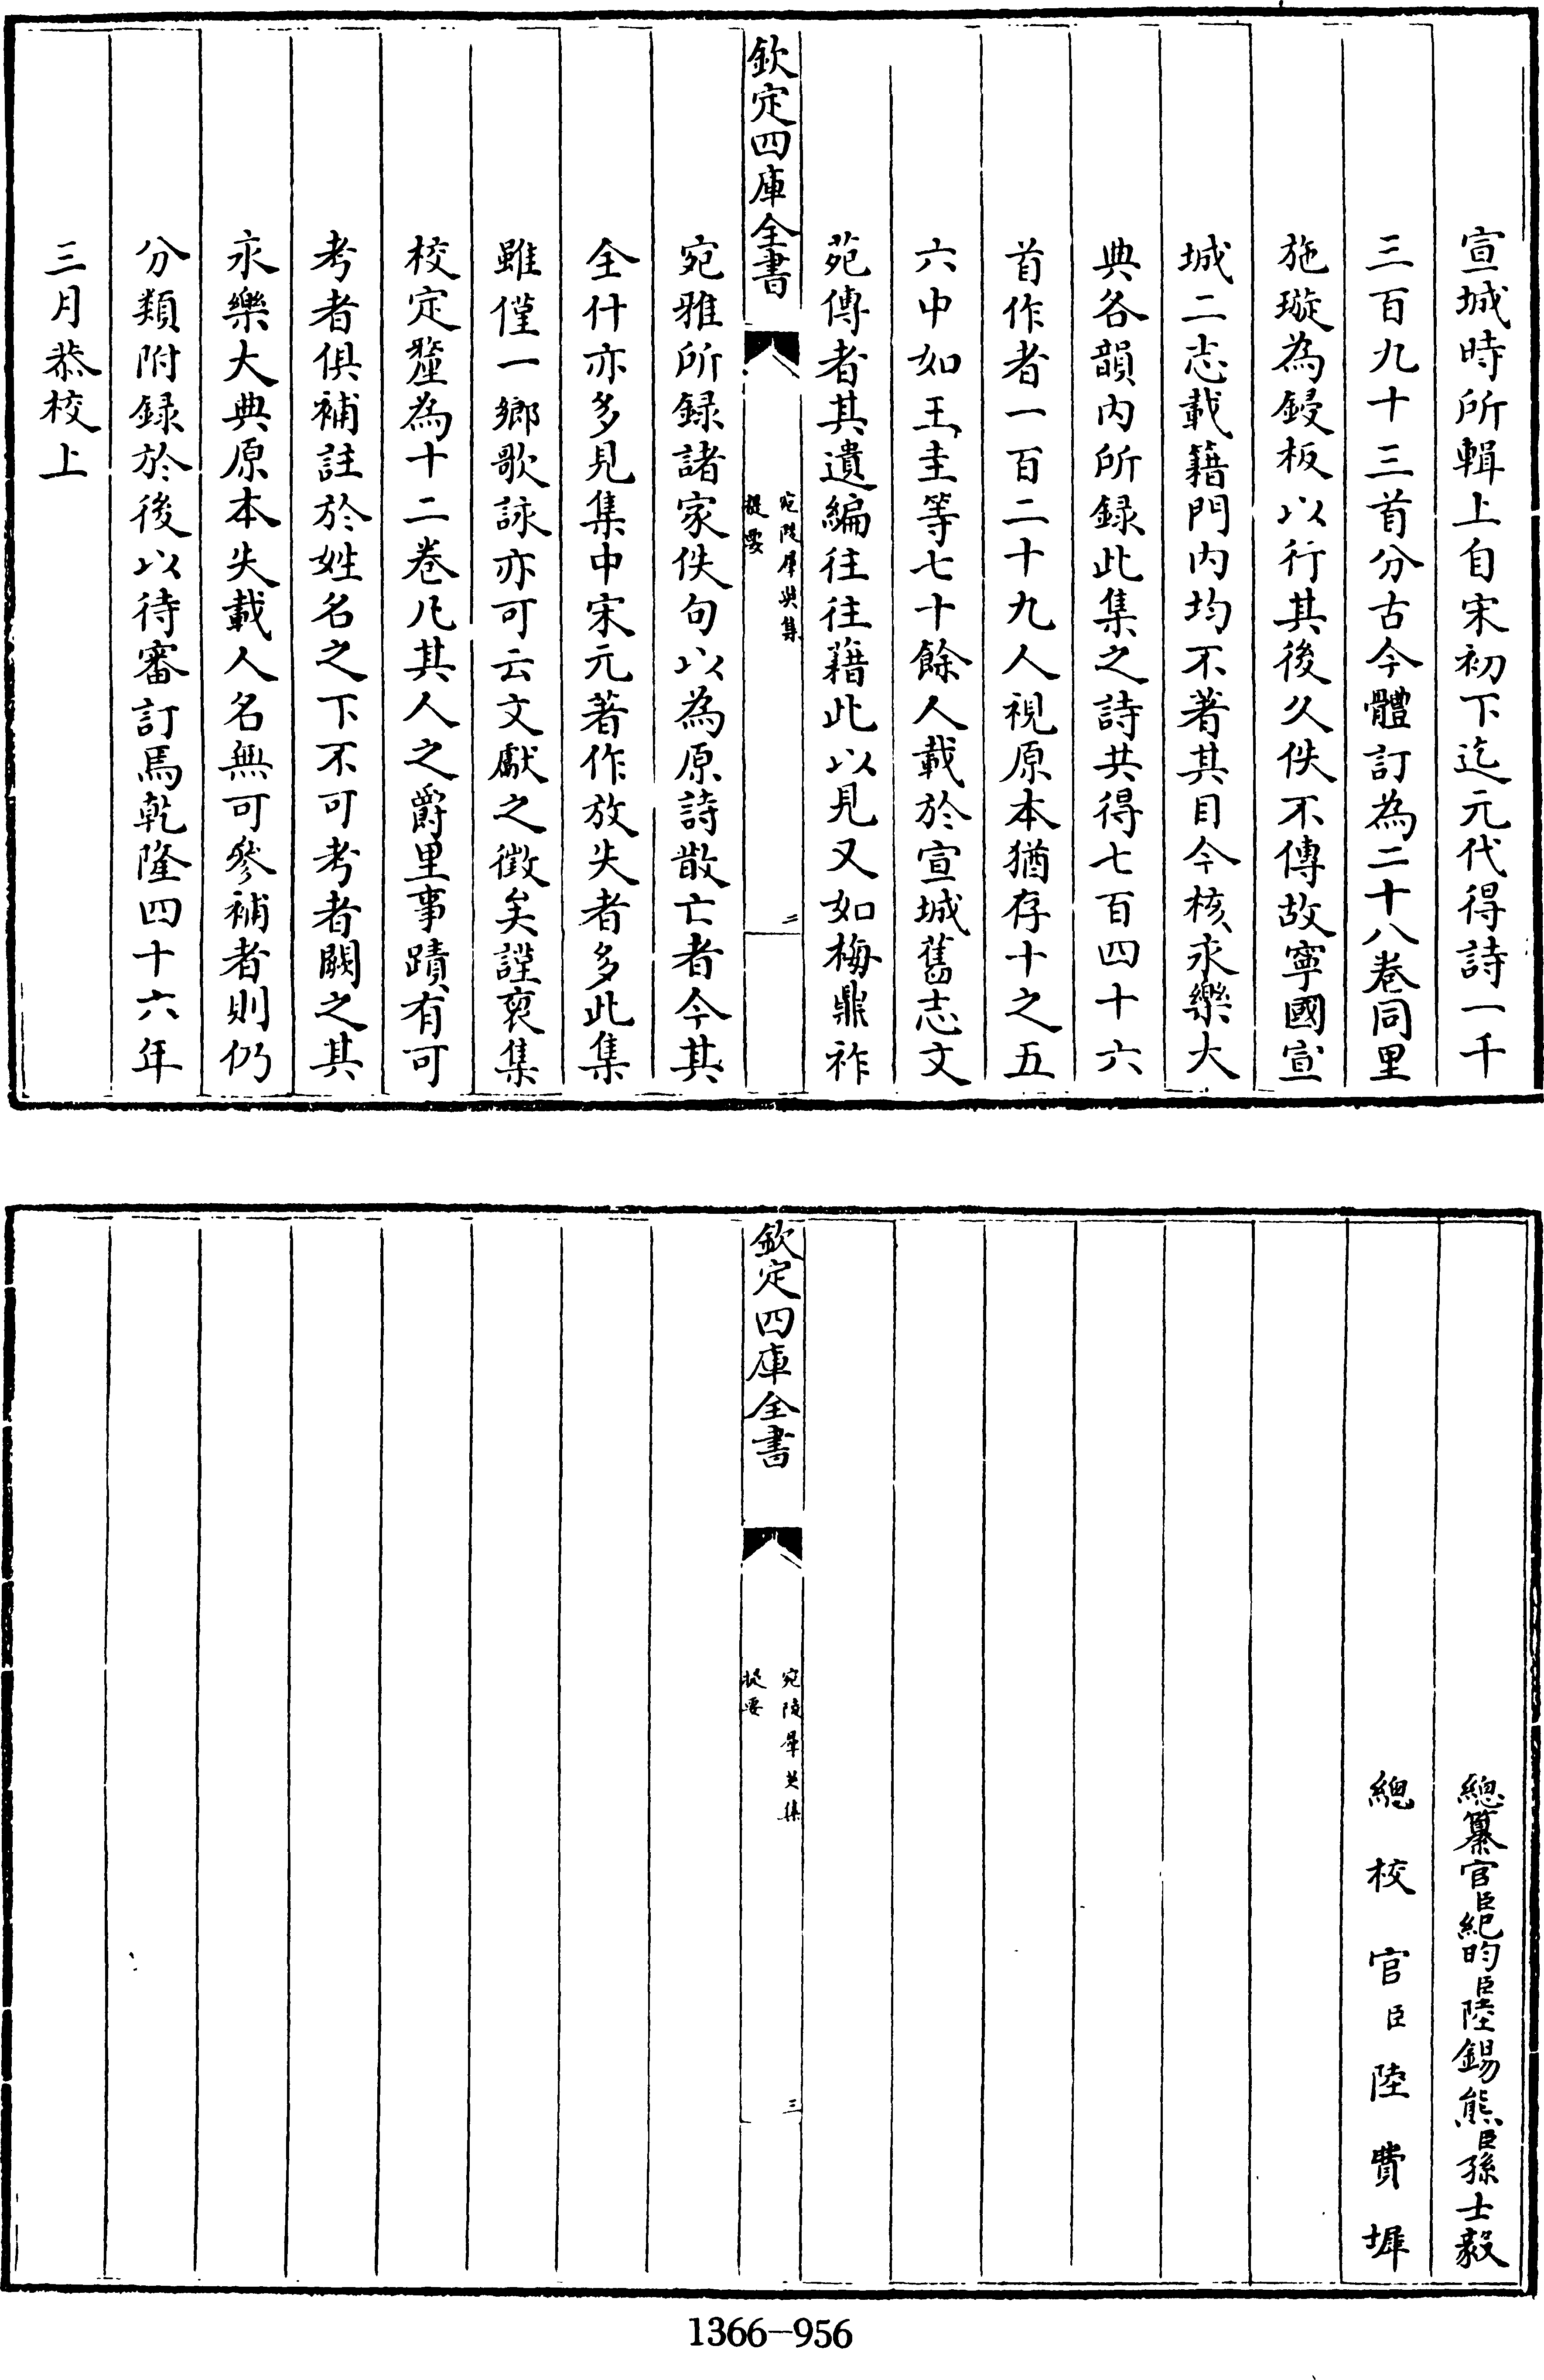 宣城時所輯上自宋初下迄元代得詩一千
三百九十三首分古今體訂為二十八卷同里
施璇為鋟板以行其後久佚不傳故寧國宣
城二志載籍門内均不著其目今核永樂大
典各韻内所録此集之詩共得七百四十六
首作者一百二十九人視原本猶存十之五
六中如王圭等七十餘人載於宣城舊志文
苑傳者其遺編往往藉此以見又如梅鼎祚
欽定四庫全書
宛陵羣英集
提要
二
宛雅所録諸家佚句以為原詩散亡者今其
全什亦多見集中宋元著作放失者多此集
雖僅一鄉歌詠亦可云文獻之徵矣謹裒集
校定釐為十二卷凡其人之爵里事蹟有可
考者俱補註於姓名之下不可考者闕之其
永樂大典原本失載人名無可參補者則仍
分類附録於後以待審訂焉乾隆四十六年
三月恭校上
總纂官臣紀昀臣陸錫熊臣孫士毅
總校官臣陸費墀
欽定四庫全書
宛陵羣英集
提要
三
1366-956